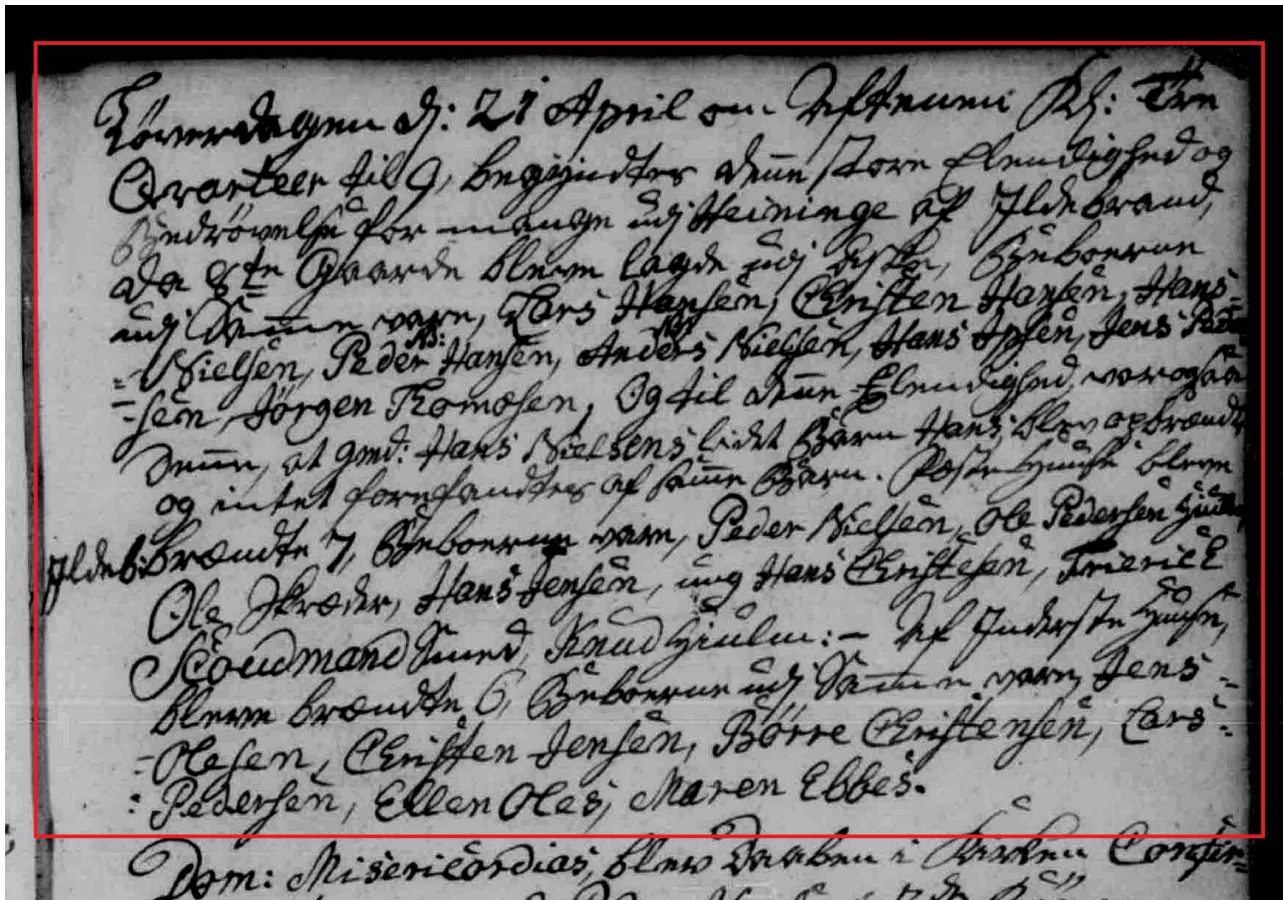 Løverdagen d: 21 April om Aftenen Kl: Tre
Qvarteer til 9, begyndtes denne store Elendighed og
Bedrøvelse for mange udj Heininge af Ildebrand,
da 8te Gaarde bleve lagde udj Aske, Beboerne
udj Samme vare, Lars Hansen, Christen Hansen, Hans=
=Nielsen, Peder Hansen, Anders Nielsen, Hans Ipsen, Jens Peder
=sen Jørgen Thomæsen, Og til denne Elendighed var ogsaa
denne, at gmd: Hans Nielsens lidet Barn Hans, blev opbrændt
og intet forefandtes af samme Barn. Huuse bleve
Ildeb: brændte 7, Beboerne vare, Peder Nielsen, Ole Pedersen
Ole Skræder, Hans Jensen, ung Hans Christesen, Frierich
Skoumand Smed, Knud Hiulm:– Af Inderste Huuse,
bleve brændte 6, Beboerne udj Samme vare, Jens=
=Olesen, Christen Jensen, Børre Christensen, Lars=
: Pedersen, Ellen Oles, Maren Ebbes.
Dom: Misericordias, blev Daaben i Kirken Confir=